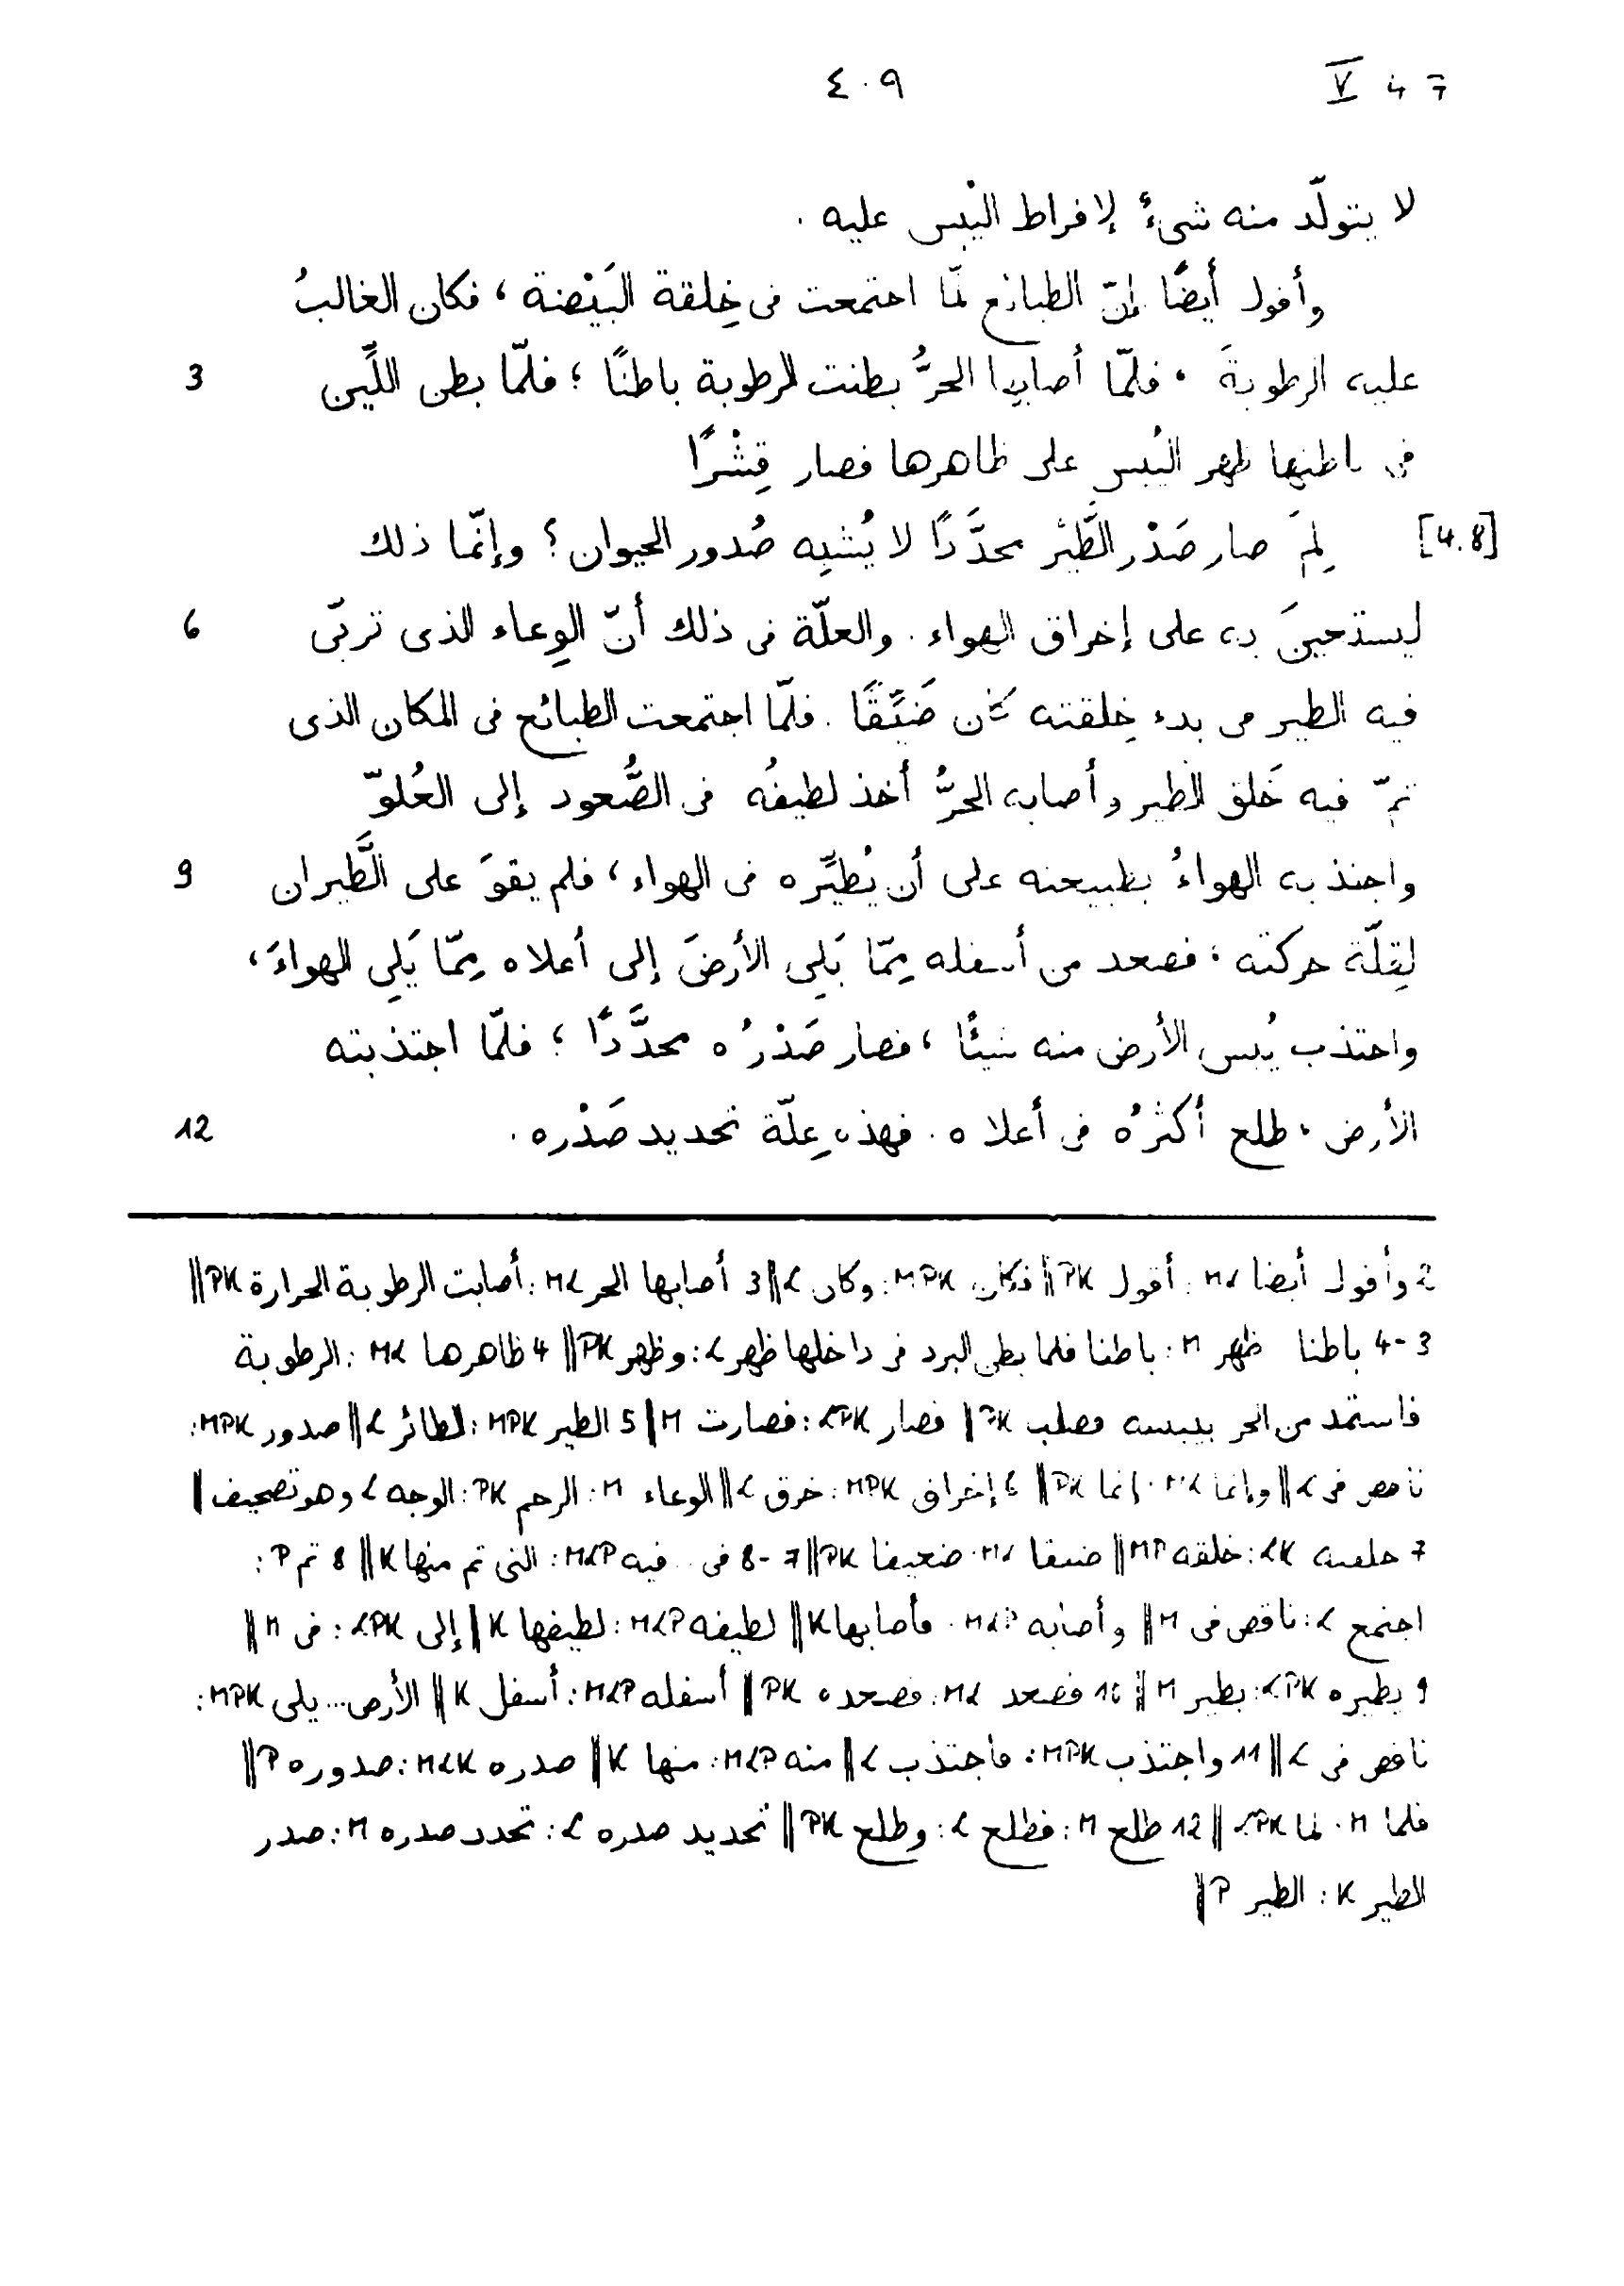 ٤٠٩ V 4 7
لا يتولّد منه شىءٌ لإفراط اليُبس عليه .
وأقول أيضًا إنّ الطبائع لمّا اجتمعت فى خِلقة البَيْضة ، فكان الغالبُ
عليه الرطوبةَ ، فلمّا أصابها الحرُّ بطنت الرطوبة باطنًا ؛ فلمّا بطن اللَّين 3
فى باطنها ظهر اليُبس على ظاهرها فصار قِشْرًا
[4.8] لِمَ صار صَدْر الطَّيْر محدَّدًا لا يُشبِه صُدور الحيوان؟ وإنّما ذلك
ليستعينَ به على إخراق الهواء . والعلّة فى ذلك أنّ الوِعاء الذى تربّى 6
فيه الطير من بدء خِلقته كان ضَيِّقًا . فلمّا اجتمعت الطبائع فى المكان الذى
تمّ فيه خَلق الطير وأصابه الحرُّ أخذ لطيفُه فى الصُّعود إلى العُلوّ
واجتذبه الهواءُ بطبيعته على أن يُطيِّره فى الهواء ، فلم يقوَ على الطَّيران 9
لِقِلّة حركته ؛ فصعد من أسفله مِمّا يَلِى الأرضَ إلى أعلاه مِمّا يَلِى الهواءَ ،
واجتذب يُبس الأرض منه شيئًا ، فصار صَدْرُه محدَّدًا ؛ فلمّا اجتذبته
الأرض ، طلع أكثرُه فى أعلاه . فهذه عِلّة تحديد صَدْره . 12
2 وأقول أيضا ML : أقول PK || فكان MPK : وكان L || 3 أصابها الحر ML : أصابت الرطوبة الحرارة PK ||
3-4 باطنا ظهر M : باطنا فلما بطن البرد فى داخلها ظهر L : وظهر PK || 4 ظاهرها ML : الرطوبة
فاستمد من الحر بيبسه فصلب PK || فصار LPK : فصارت M || 5 الطير MPK : الطائر L || صدور MPK :
ناقص فى L || وإنما ML : إنما PK || 6 إخراق MPK : خرق L || الوعاء M : الرحم PK : الوجه L وهو تصحيف ||
7 خلقته LK : خلقه MP || ضيقا ML : ضعيفا PK || 7-8 فى .. فيه MLP : التى تم منها K || 8 تم P :
اجتمع L : ناقص فى M || وأصابه MLP : فأصابها K || لطيفه MLP : لطيفها K || إلى LPK : فى M ||
9 يطيره LPK : يطير M || 10 فصعد ML : فصعده PK || أسفله MLP : أسفل K || الأرض ... يلى MPK :
ناقص فى L || 11 واجتذب MPK : فاجتذب L || منه MLP : منها K || صدره MLK : صدوره P ||
فلما M : لما LPK || 12 طلع M : فطلع L : وطلع PK || تحديد صدره L : تحدد صدره M : صدر
الطير K : الطير P ||